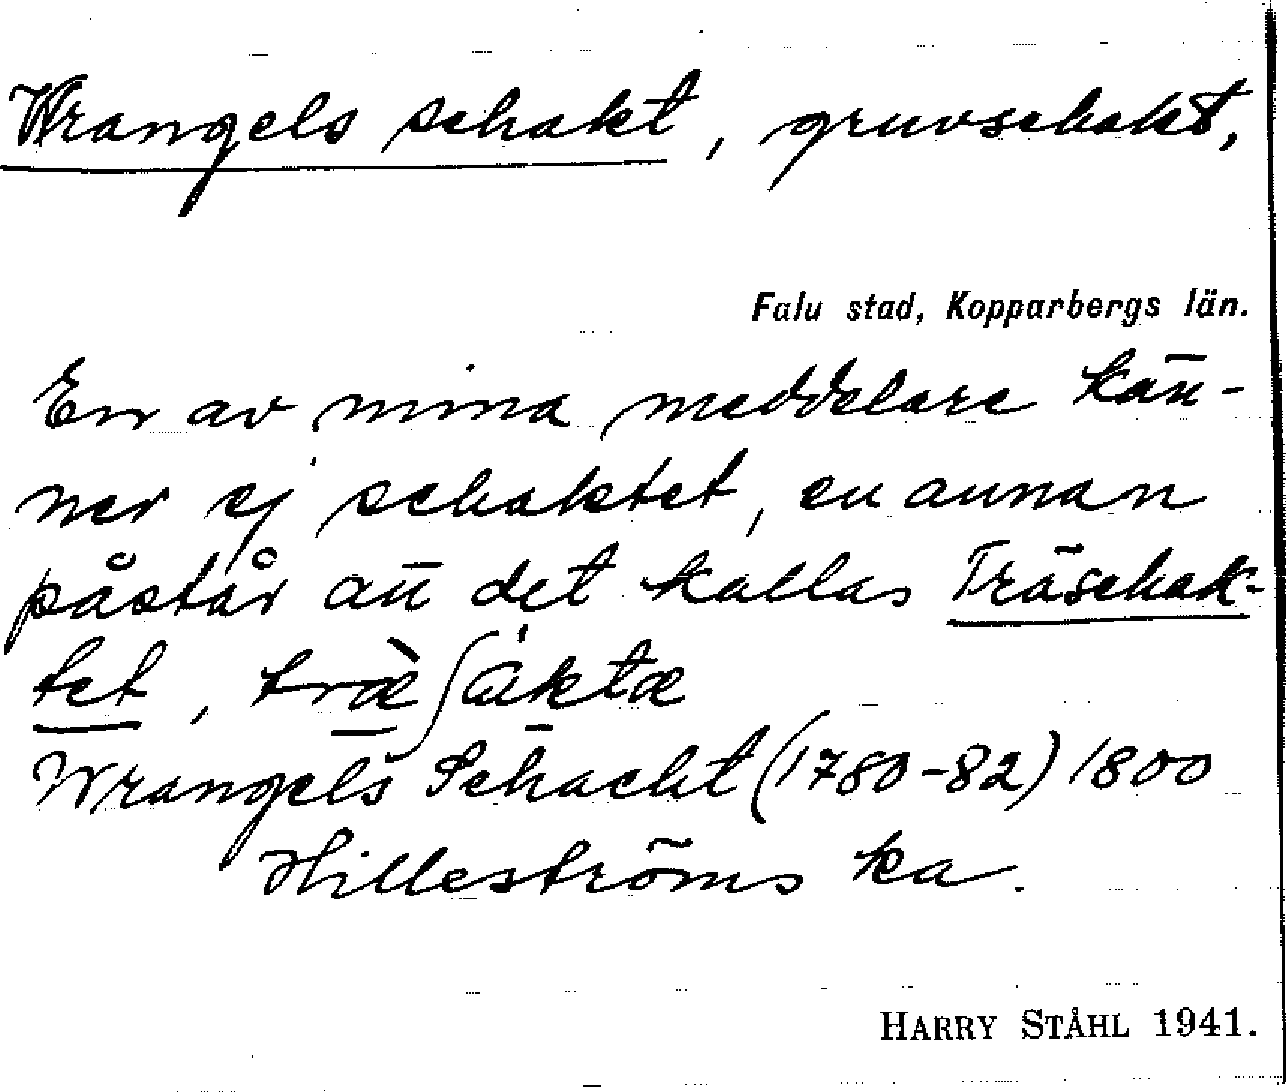 Wrangels schakt, gruvschakt,
Falu stad, Kopparbergs län.
En av mina meddelare kän-
ner ej schaktet, en annan
påstår att det kallas Träschak-
tet, træ̀ʃáktæ
Wrangels Schacht (1780-82) 1800
Hilleströms ka.
HARRY STÅHL 1941.